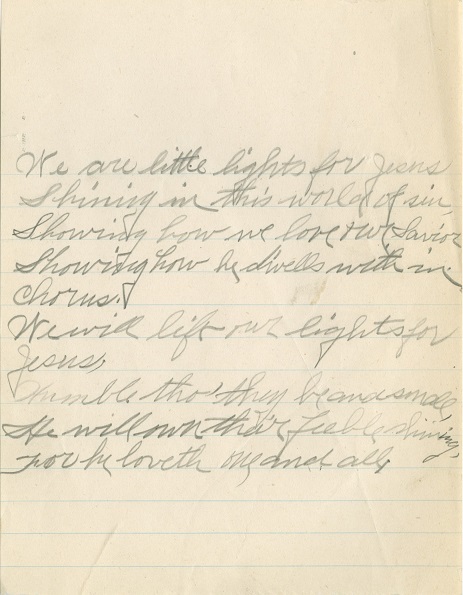 We are little lights for Jesus
Shining in this world of sin,
Showing how we love our Savior
Showing how he dwells with in.
Chorus.
We will lift our lights for
Jesus,
Humble tho' they be and small,
He will own their feeble shining,
For he loveth one and all.